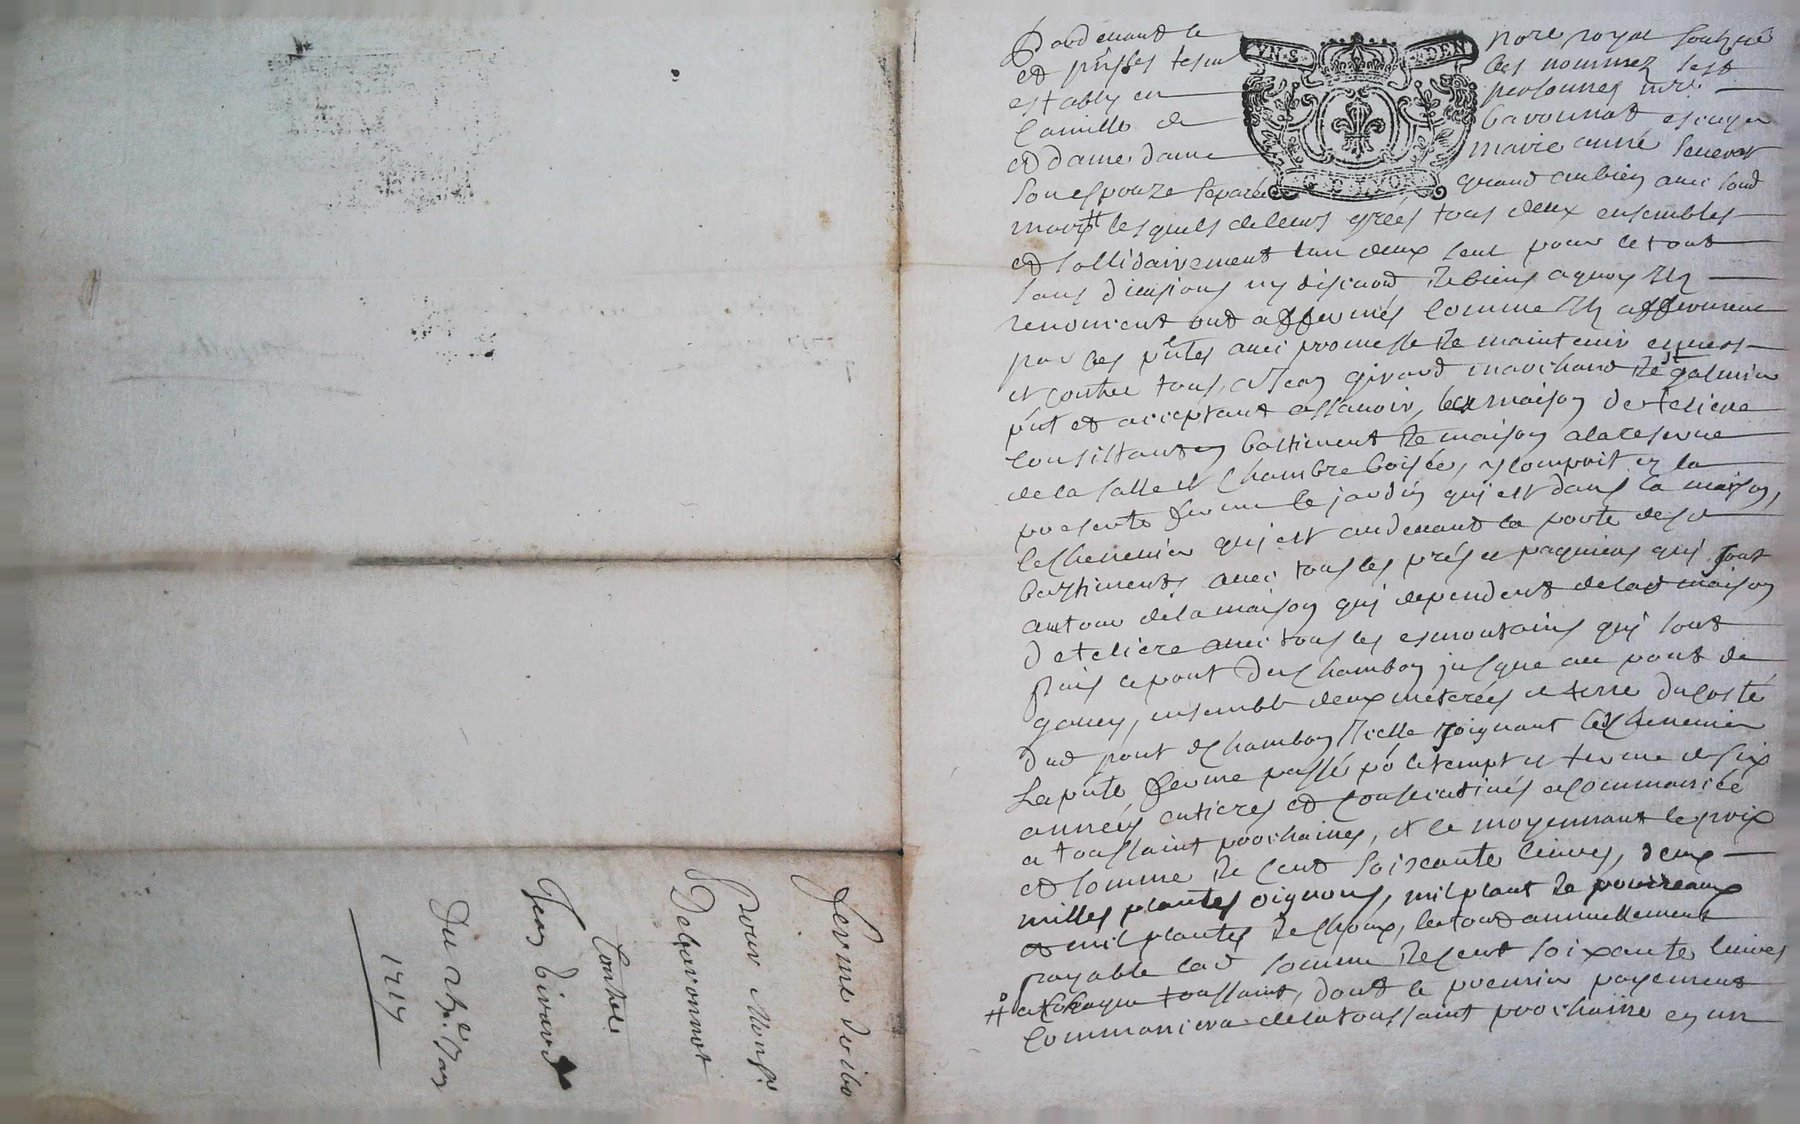 Pardevant le nore royal soubzné
et pntz tesm bas nommez sest
estably en personnes mre
Camille de Bavonnat escuyer
et dame dame marie anne
son espouze separée quand au biens avec led
mary lesquels de leurs grées tous deux ensembles
et sollidairement lun deux seul pour le tout
sans divisions ny discution de biens a quoy Ils
renoncent ont affermés comme Ils afferment
par ces pntes avec promesse de maintenir envers
et contre tous, a Jean Girard marchand de st galmier
pnt et acceptant assavoir, la maison
consistant en bastiment de maison a la reserve
de la salle et chambre boisée, y compris en la
presente ferme le jardin qui est dans la maison,
le chenevier qui est audevant la porte desd
bastiments avec tous les prés et paquiers qui sont
autour de la maison qui dependent de lad maison
avec tous les qui sont
puis le pont du Chambon jusque au pont de
ensemble deux meterées de terre du costé
dud pont de Chambon Icelle joignant le chenevier
La pnte ferme passé po le tempt et terme de six
années entieres et consecutives a commancée
a toussaint prochaines, et ce moyennant le prix
et somme de cent soixante livres, deux
milles plantes oignons, mil plant de pourreaux
et mil plantes de choux, le tout annuellement
payable lad somme de cent soixante livres
a chaque toussaint, dont le premier payement
commancera de la toussaint prochaine en un
VN.S. DEN
G. D. LYON
ferme de 160
Pour Monsr
Debavonnat
Contre
Jean Girard
Du
1717